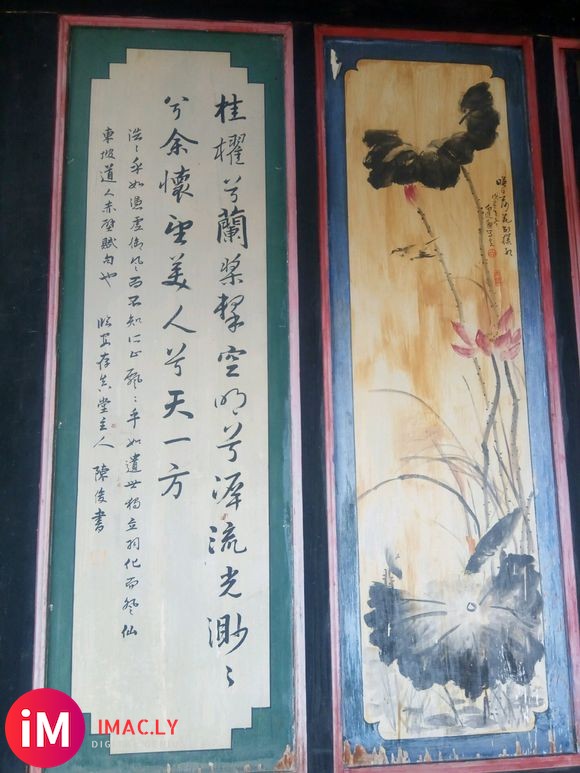 桂櫂兮蘭槳擊空明兮泝流光渺〻
兮余懷望美人兮天一方
浩〻乎如馮虛御風而不知所止飄〻乎如遺世獨立羽化而登仙
東坡道人赤壁賦句也 臨安存真堂主人 陳俊書
映日荷花别樣紅
iM
IMAC.LY
DIG